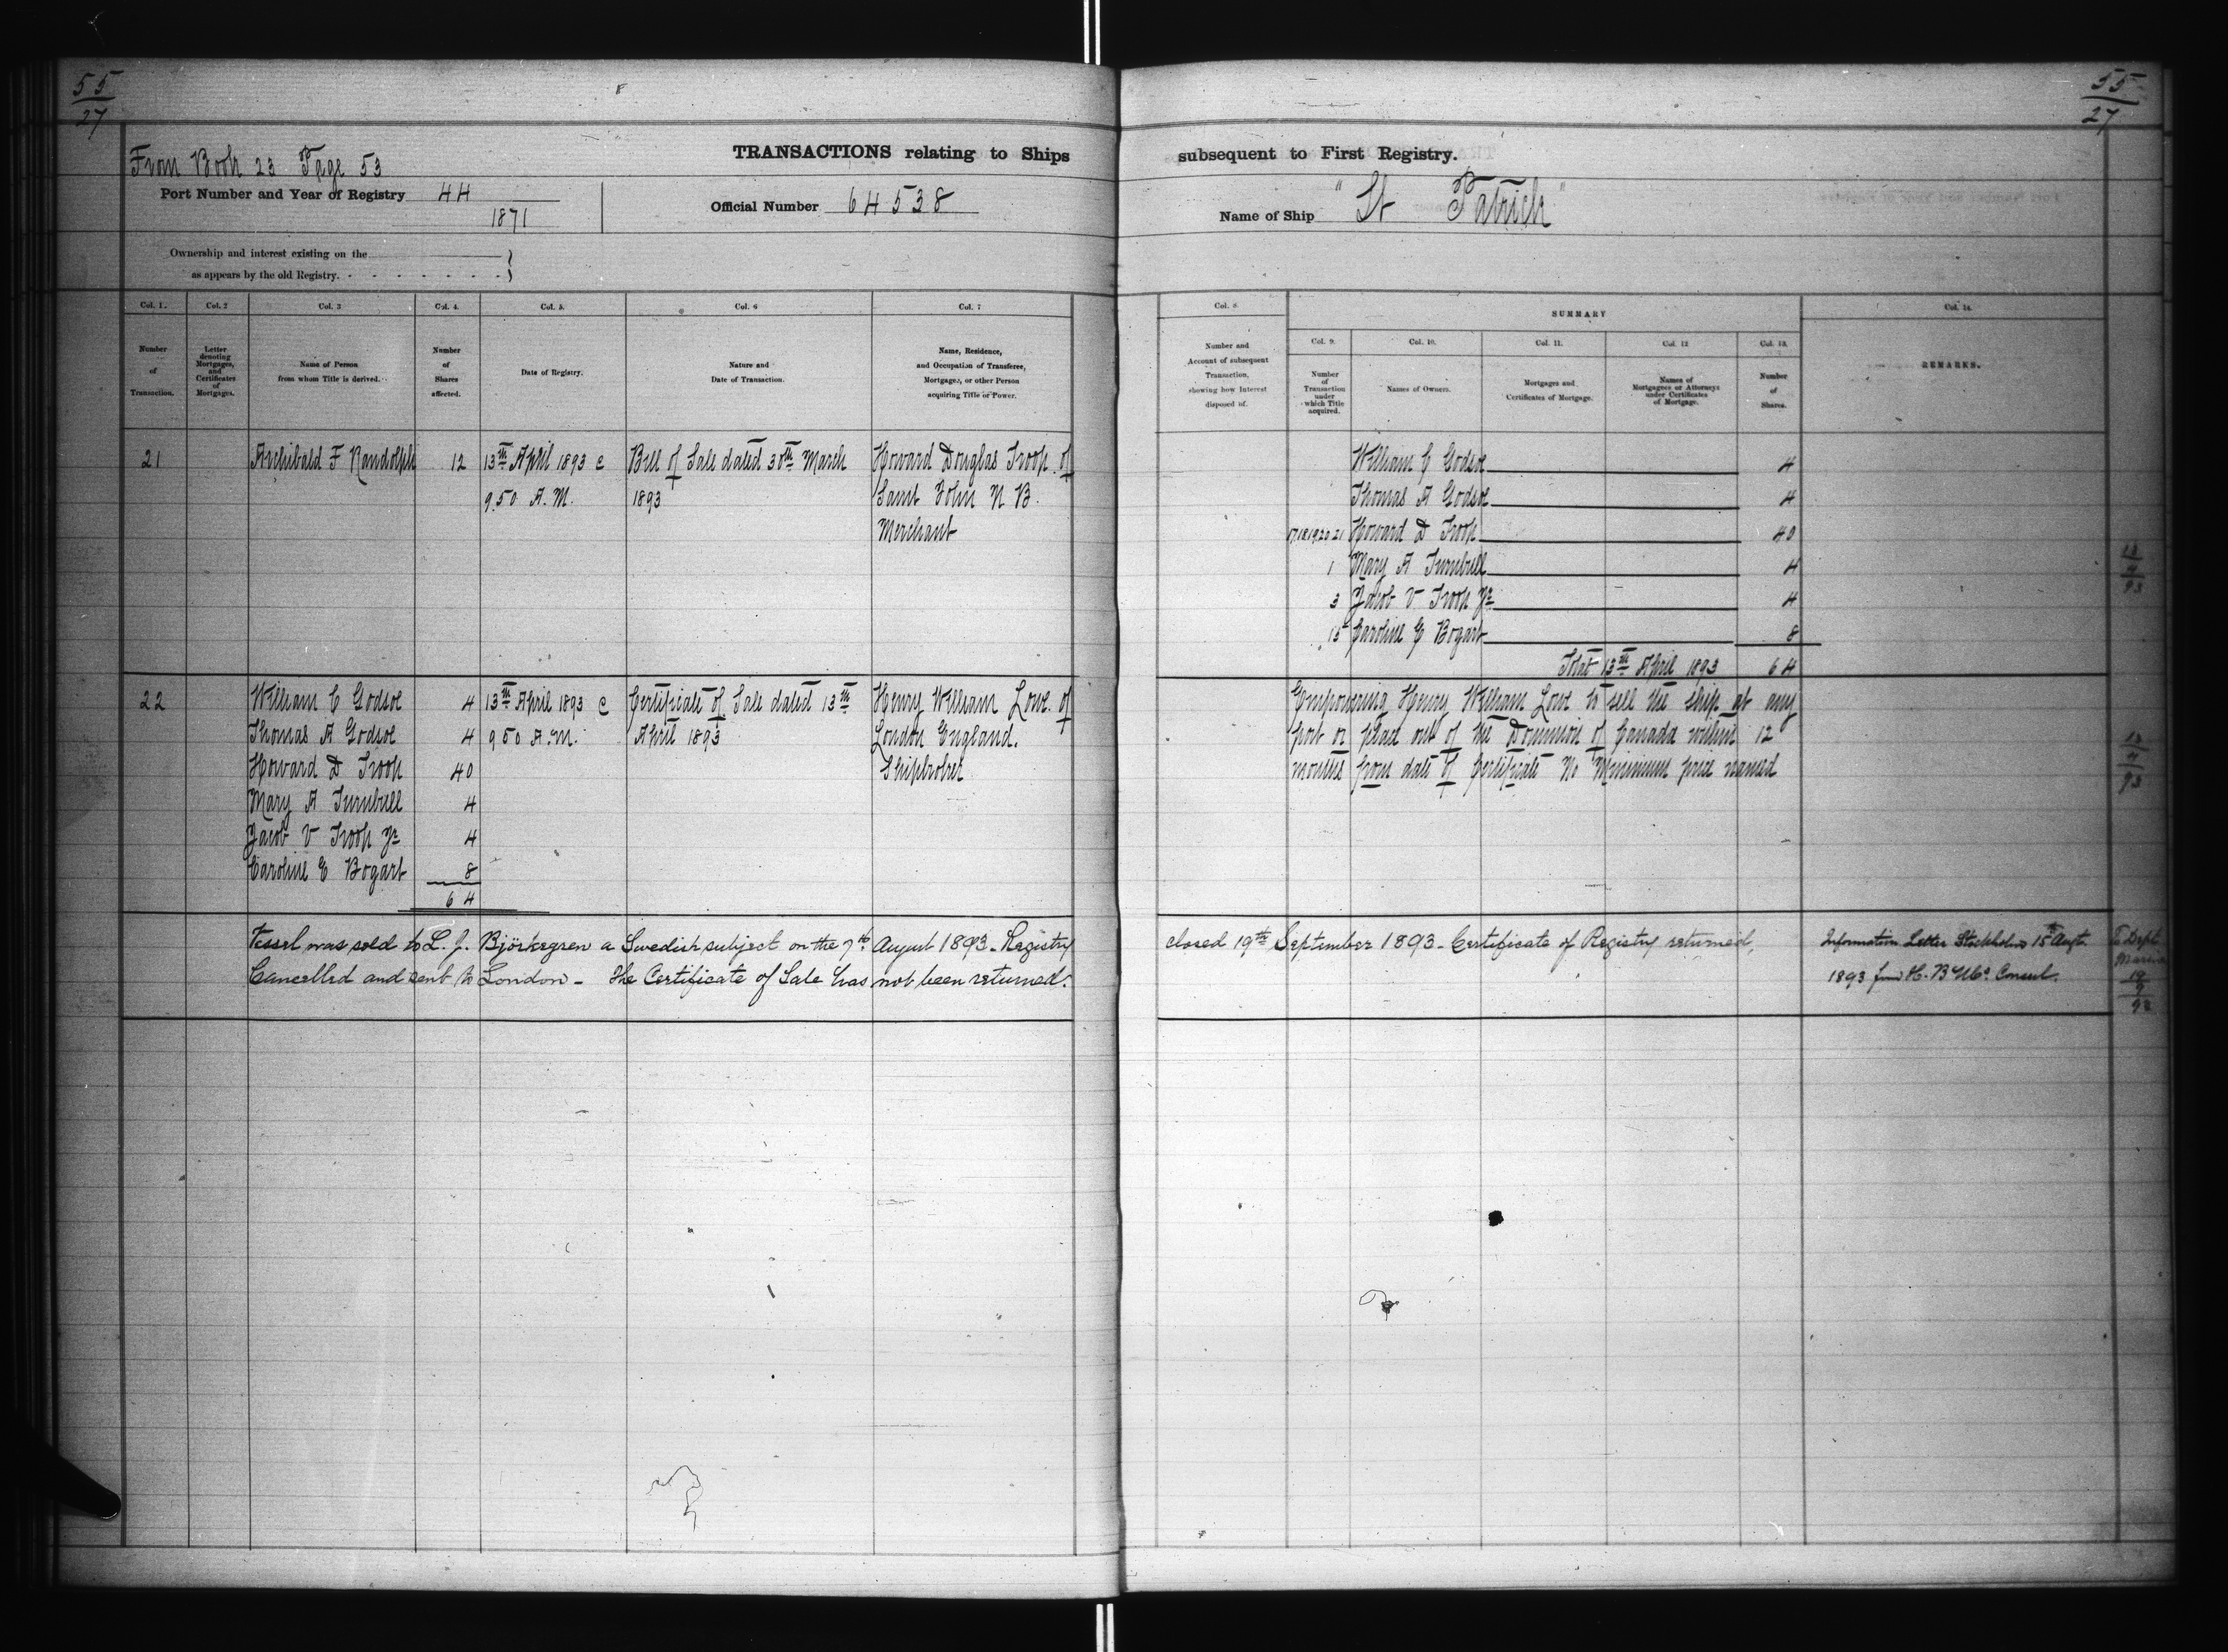 55
27
From Book 23 Page 53
TRANSACTIONS relating to Ships
Port Number and Year of Registry 44
1871
Official Number 64538
Ownership and interest existing on the
as appears by the old Registry.
Col. 1.
Number
of
Transaction.
Col. 2
Letter
denoting
Mortgages,
and
Certificates
of
Mortgages.
Col. 3
Name of Person
from whom Title is derived.
Col. 4.
Number
of
Shares
affected.
Col. 5.
Date of Registry.
Col. 6
Nature and
Date of Transaction.
Col. 7
Name, Residence,
and Occupation of Transferee,
Mortgagee, or other Person
acquiring Title or Power.
21 Archibald F Randolph 12 13th April 1893 @ Bill of Sale dated 30th March Howard Douglas Troop of
9.50 A.M. 1893 Saint John N B
Merchant
22 William C Godsoe 4 13th April 1893 @ Certificate of Sale dated 13th Henry William Lowe of
Thomas A Godsoe 4 9 50 A.M. April 1893 London England.
Howard D Troop 40 Shipbroker
Mary A Turnbull 4
Jacob V Troop Jr 4
Caroline E Bogart 8
64
Vessel was sold to L. J. Björkegren a Swedish subject on the 7th August 1893. Registry
Cancelled and sent to London - The Certificate of Sale has not been returned.
55
27
subsequent to First Registry.
Name of Ship "St Patrick"
Col. 8.
Number and
Account of subsequent
Transaction,
showing how Interest
disposed of.
SUMMARY
Col. 9.
Number
of
Transaction
under
which Title
acquired.
Col. 10.
Names of Owners.
Col. 11.
Mortgages and
Certificates of Mortgage.
Col. 12
Names of
Mortgagees or Attorneys
under Certificates
of Mortgage.
Col. 13.
Number
of
Shares.
Col. 14.
REMARKS.
William C Godsoe 4
Thomas A Godsoe 4
17.18.19.20 21 Howard D Troop 40
1 Mary A Turnbull 4
3 Jacob V Troop Jr 4
15 Caroline E Bogart 8
Total 13th April 1893 64
13
4
93
Empowering Henry William Lowe to sell the ship at any
port or place out of the Dominion of Canada within 12
months from date of Certificate No Minimum price named
13
4
93
closed 19th September 1893 - Certificate of Registry returned,
Information Letter Stockholm 15th Augt.
1893 from H. B M's Consul.
To Dept
Marine
19
9
93